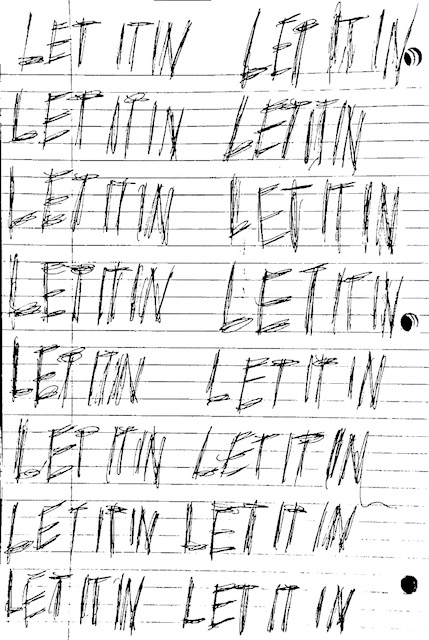 LET IT IN LET IT IN
LET IT IN LET IT IN
LET IT IN LET IT IN
LET IT IN LET IT IN
LET IT IN LET IT IN
LET IT IN LET IT IN
LET IT IN LET IT IN
LET IT IN LET IT IN